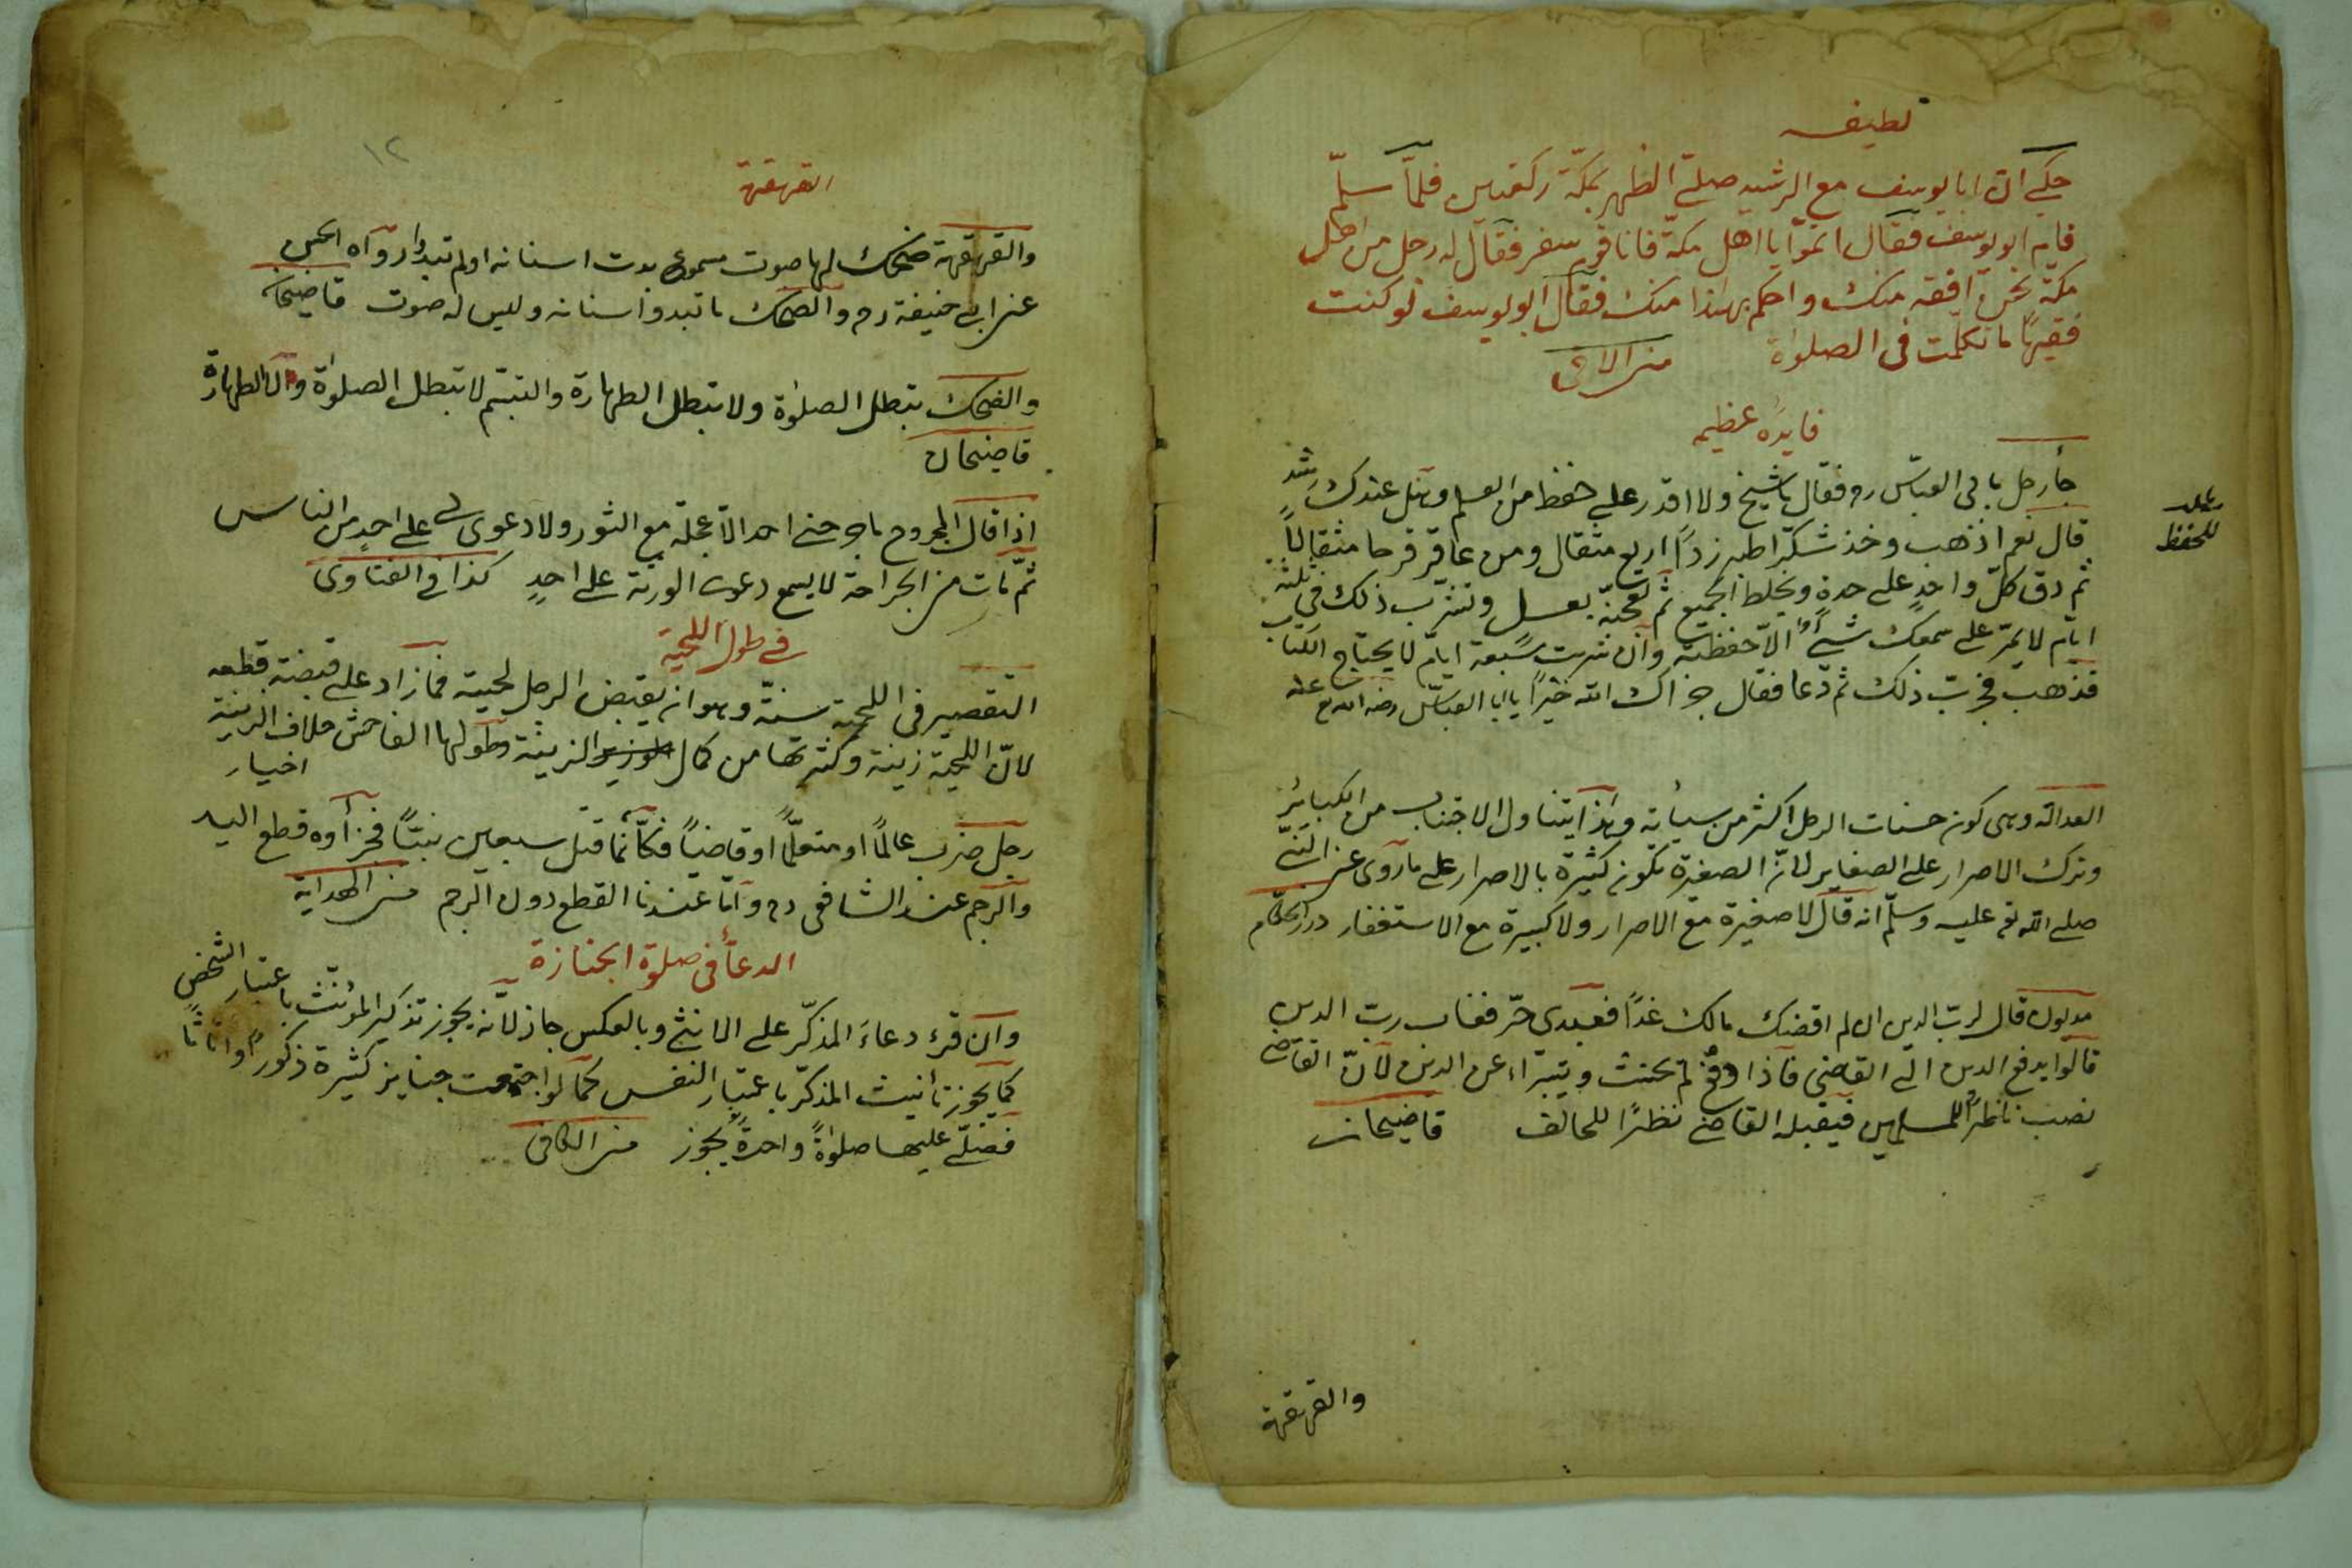 لطيفه
حكى ان ابا يوسف مع الرشيد صلى الظهر بمكة ركعتين فلما سلم
قام ابو يوسف فقال اتموا يا اهل مكة فانا قوم سفر فقال له رجل من اهل
مكة نحن افقه منك واحكم بهذا منك فقال ابو يوسف لو كنت
فقيها ما تكلمت فى الصلوة
فايده عظيمه
جأ رجل بابى العباس رم فقال يا شيخ ولا اقدر على حفظ من العلم وهل عندك شئ
للحفظ
قال نعم اذهب وخذ شكرا طبرزدا اربع مثقال ومن عاقر قرحا مثقالا
ثم دق كل واحد على حدة ويخلط الجميع ثم تعجنه بعسل وتشرب ذلك فى ثلثة
ايام لا يمر على سمعك شئ الا حفظته وان شربت سبعة ايام لا يحتاج الكتاب
فذهب فجرب ذلك ثم دعا فقال جزاك الله خيرا يا ابا العباس رضى الله عنه
العدالة وهى كون حسنات الرجل اكثر من سيأته وهذا يتناول الاجتناب من الكبائر
وترك الاصرار على الصغاير لان الصغيرة تكون كثيرة بالاصرار على ما روى عن النبى
صلى الله تع عليه وسلم انه قال لا صغيرة مع الاصرار ولا كبيرة مع الاستغفار درر الحكام
مديون قال لرب الدين ان لم اقضك مالك غدا فعبدى حر فغاب رب الدين
قالوا يدفع الدين الى القاضى فاذا دفع لم يحنث ويتبرأ عن الدين لان القاضى
نصب ناظرا للمسلمين فيقبله القاضى نظرا للحالف قاضيخان
والقهقهة
١٢
القهقهة
والقهقهة ضحك لها صوت مسموع بدت اسنانه او لم تبد رواه الحسن
عن ابى حنيفة رم والضحك ما تبدوا اسنانه وليس له صوت قاضيخان
والضحك تبطل الصلوة ولا تبطل الطهارة والتبسم لا تبطل الصلوة ولا الطهارة
قاضيخان
اذا قال المجروح ما جرحنى احد الا عجلة مع الثور ولا دعوى لى على احد من الناس
ثم مات من الجراحة لا يسمع دعوى الورثة على احد كذا فى الفتاوى
فى طول اللحية
التقصير فى اللحية سنة وهو ان يقبض الرجل لحيته فما زاد على قبضة قطعه
لان اللحية زينة وكثرتها من كمال الزينة وطولها الفاحش خلاف الزينة
اختيار
رجل ضرب عالما او متعلما او قاضيا فكأنما قتل سبعين نبيا فجزأوه قطع اليد
والرجم عند الشافعى رم واما عندنا القطع دون الرجم من الهداية
الدعأ فى صلوة الجنازة
وان قرء دعاء المذكر على الانثى وبالعكس جاز لانه يجوز تذكير المؤنث باعتبار الشخص
كما يجوز تأنيث المذكر باعتبار النفس كما لو اجتمعت جنايز كثيرة ذكورا واناثا
فصلى عليها صلوة واحدة يجوز من الكافى